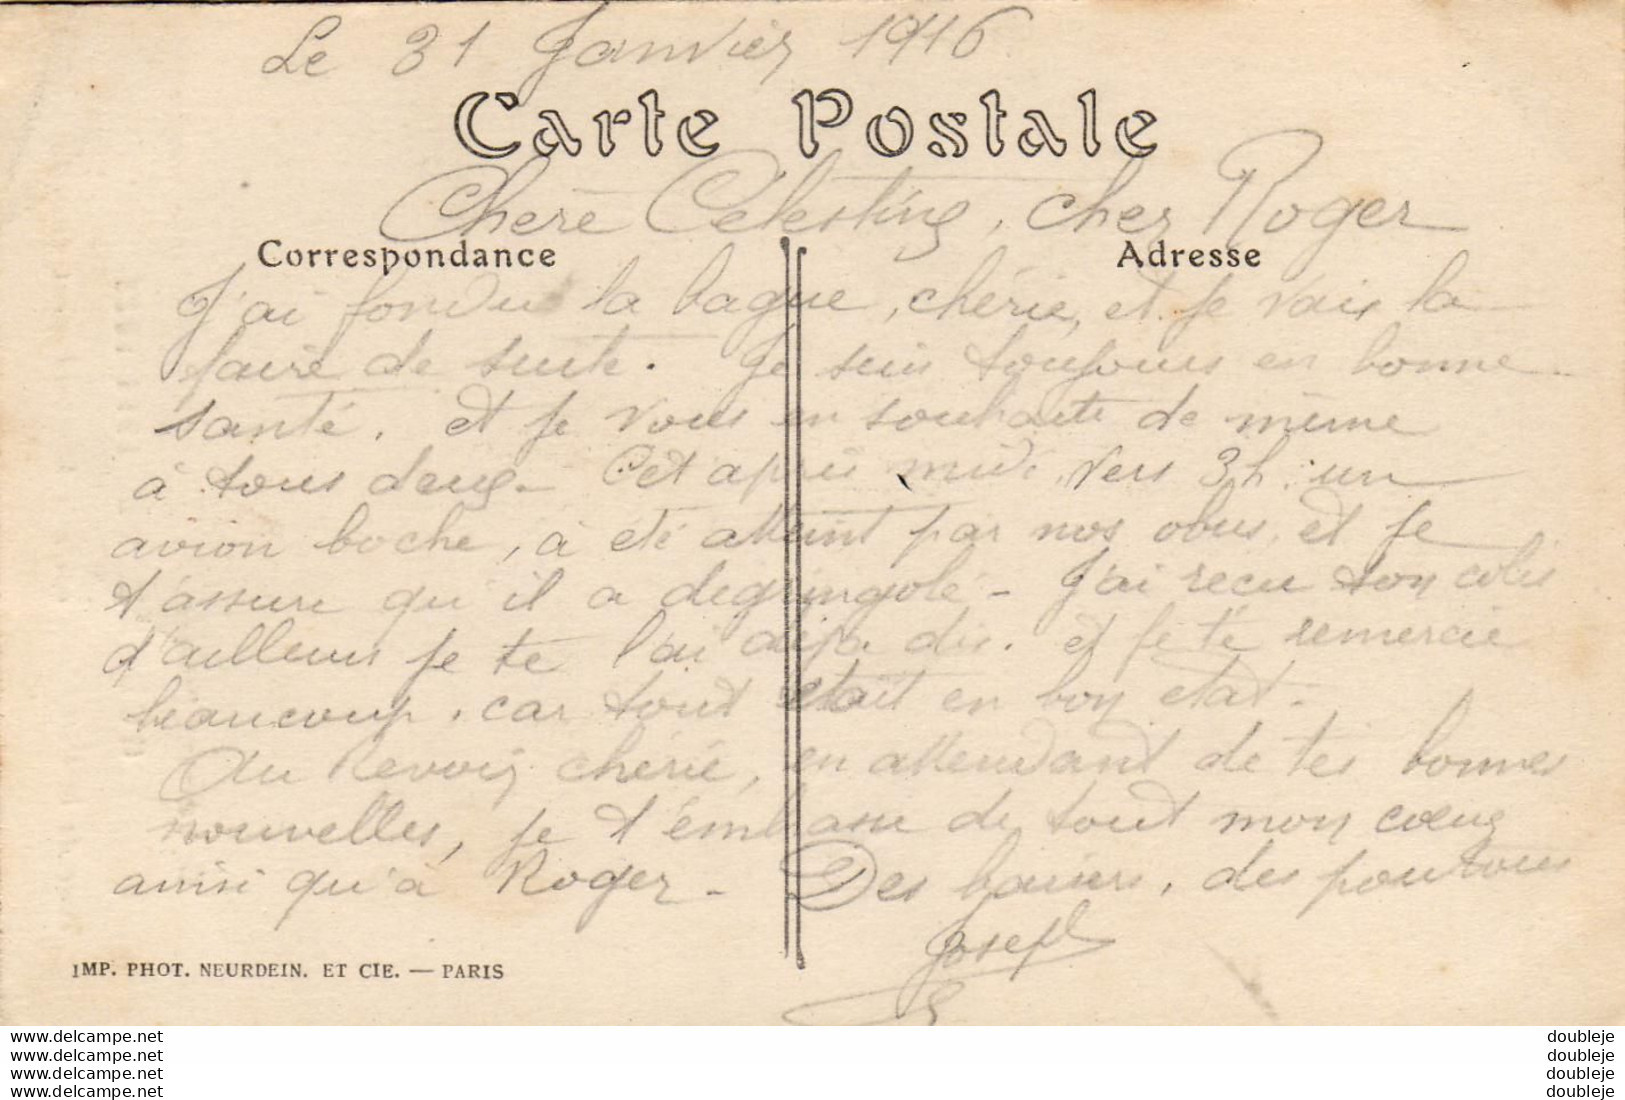 Le 31 Janvier 1916
Carte Postale
Chère Célestine, cher Roger
Correspondance
Adresse
J'ai fondu la bague, chérie, et je vais la
faire de suite. Je suis toujours en bonne
santé, et je vous en souhaite de même
à tous deux - Cet après midi, vers 3h. un
avion boche, à été atteint par nos obus, et je
t'assure qu'il a dégringolé - J'ai reçu ton colis
d'ailleurs je te l'ai déjà dis. et je t'e remercie
beaucoup, car tout était en bon état.
Au Revoir chérie, en attendant de tes bonnes
nouvelles, je t'embrasse de tout mon cœur
ainsi qu'à Roger - Des baisers, des poutous
Joseph
IMP. PHOT. NEURDEIN. ET CIE. — PARIS
www.delcampe.net
www.delcampe.net
www.delcampe.net
www.delcampe.net
doubleje
doubleje
doubleje
doubleje